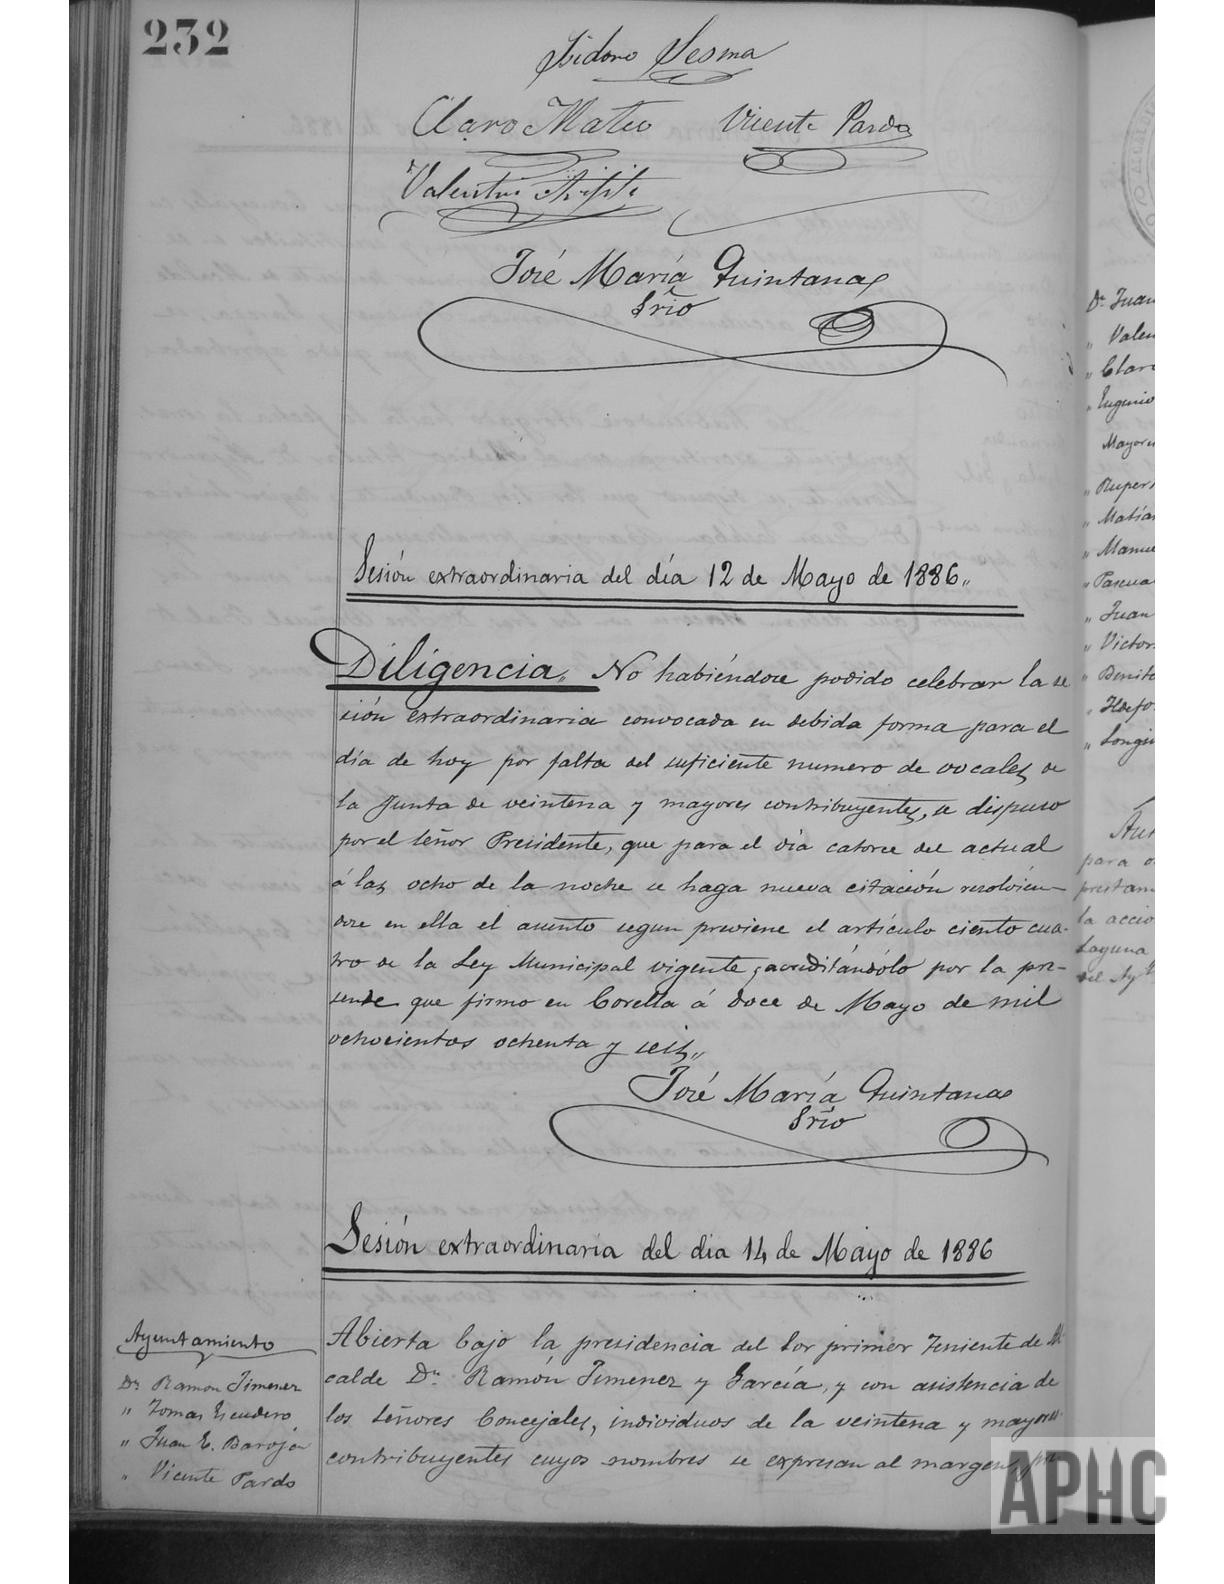 232
Isidoro Sesma
Claro Mateo Vicente Pardo
Valentin
José María Quintana
Srio
Sesión extraordinaria del día 12 de Mayo de 1886„
Diligencia„ No habiéndose podido celebrar la se
sión extraordinaria convocada en debida forma para el
día de hoy por falta del suficiente numero de vocales de
la Junta de veintena y mayores contribuyentes, se dispuso
por el señor Presidente, que para el día catorce del actual
á las ocho de la noche se haga nueva citación resolvién-
dose en ella el asunto segun previene el artículo ciento cua-
tro de la Ley Municipal vigente, acreditándolo por la pre-
sente que firmo en Corella á doce de Mayo de mil
ochocientos ochenta y seis„
José María Quintana
Srio
Sesión extraordinaria del día 14 de Mayo de 1886
Ayuntamiento
Dn Ramón Jimenez
„ Tomas Escudero
„ Juan E. Barojan
„ Vicente Pardo
Abierta bajo la presidencia del Sor primer Teniente de Al
calde Dn Ramón Jimenez y García, y con asistencia de
los señores Concejales, individuos de la veintena y mayores
contribuyentes cuyos nombres se expresan al margen,
Dn Juan
„ Valen
„ Claro
„ Eugenio
Mayores
„ Rupers
„ Matías
„ Manue
„ Pascua
„ Juan
„ Victor
„ Benito
„ Ildefo
„ Longi
para
prestam
la accio
Laguna
del Ayto
APHC